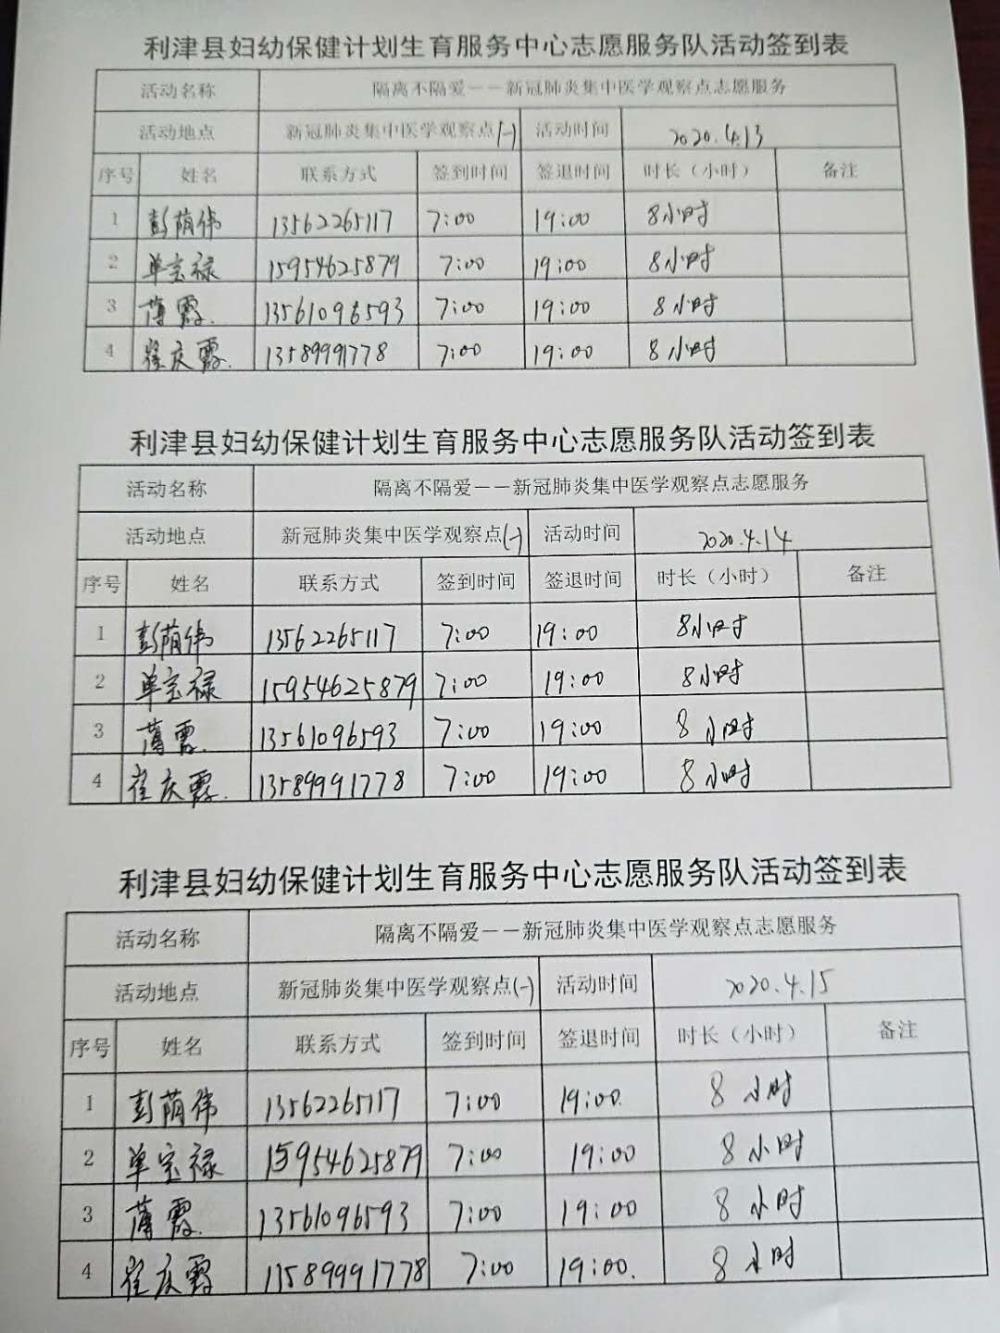 利津县妇幼保健计划生育服务中心志愿服务队活动签到表
活动名称 隔离不隔爱——新冠肺炎集中医学观察点志愿服务
活动地点 新冠肺炎集中医学观察点(一) 活动时间 2020.4.13
序号 姓名 联系方式 签到时间 签退时间 时长（小时） 备注
1 彭荫伟 13562265117 7:00 19:00 8小时
2 单宝禄 15954625879 7:00 19:00 8小时
3 薄霞. 13561096593 7:00 19:00 8小时
4 崔庆霞. 13589991778 7:00 19:00 8小时
利津县妇幼保健计划生育服务中心志愿服务队活动签到表
活动名称 隔离不隔爱——新冠肺炎集中医学观察点志愿服务
活动地点 新冠肺炎集中医学观察点(一) 活动时间 2020.4.14
序号 姓名 联系方式 签到时间 签退时间 时长（小时） 备注
1 彭荫伟 13562265117 7:00 19:00 8小时
2 单宝禄 15954625879 7:00 19:00 8小时
3 薄霞. 13561096593 7:00 19:00 8小时
4 崔庆霞. 13589991778 7:00 19:00 8小时
利津县妇幼保健计划生育服务中心志愿服务队活动签到表
活动名称 隔离不隔爱——新冠肺炎集中医学观察点志愿服务
活动地点 新冠肺炎集中医学观察点(一) 活动时间 2020.4.15
序号 姓名 联系方式 签到时间 签退时间 时长（小时） 备注
1 彭荫伟 13562265117 7:00 19:00. 8小时
2 单宝禄 15954625879 7:00 19:00 8小时
3 薄霞. 13561096593 7:00 19:00 8小时
4 崔庆霞 13589991778 7:00 19:00. 8小时